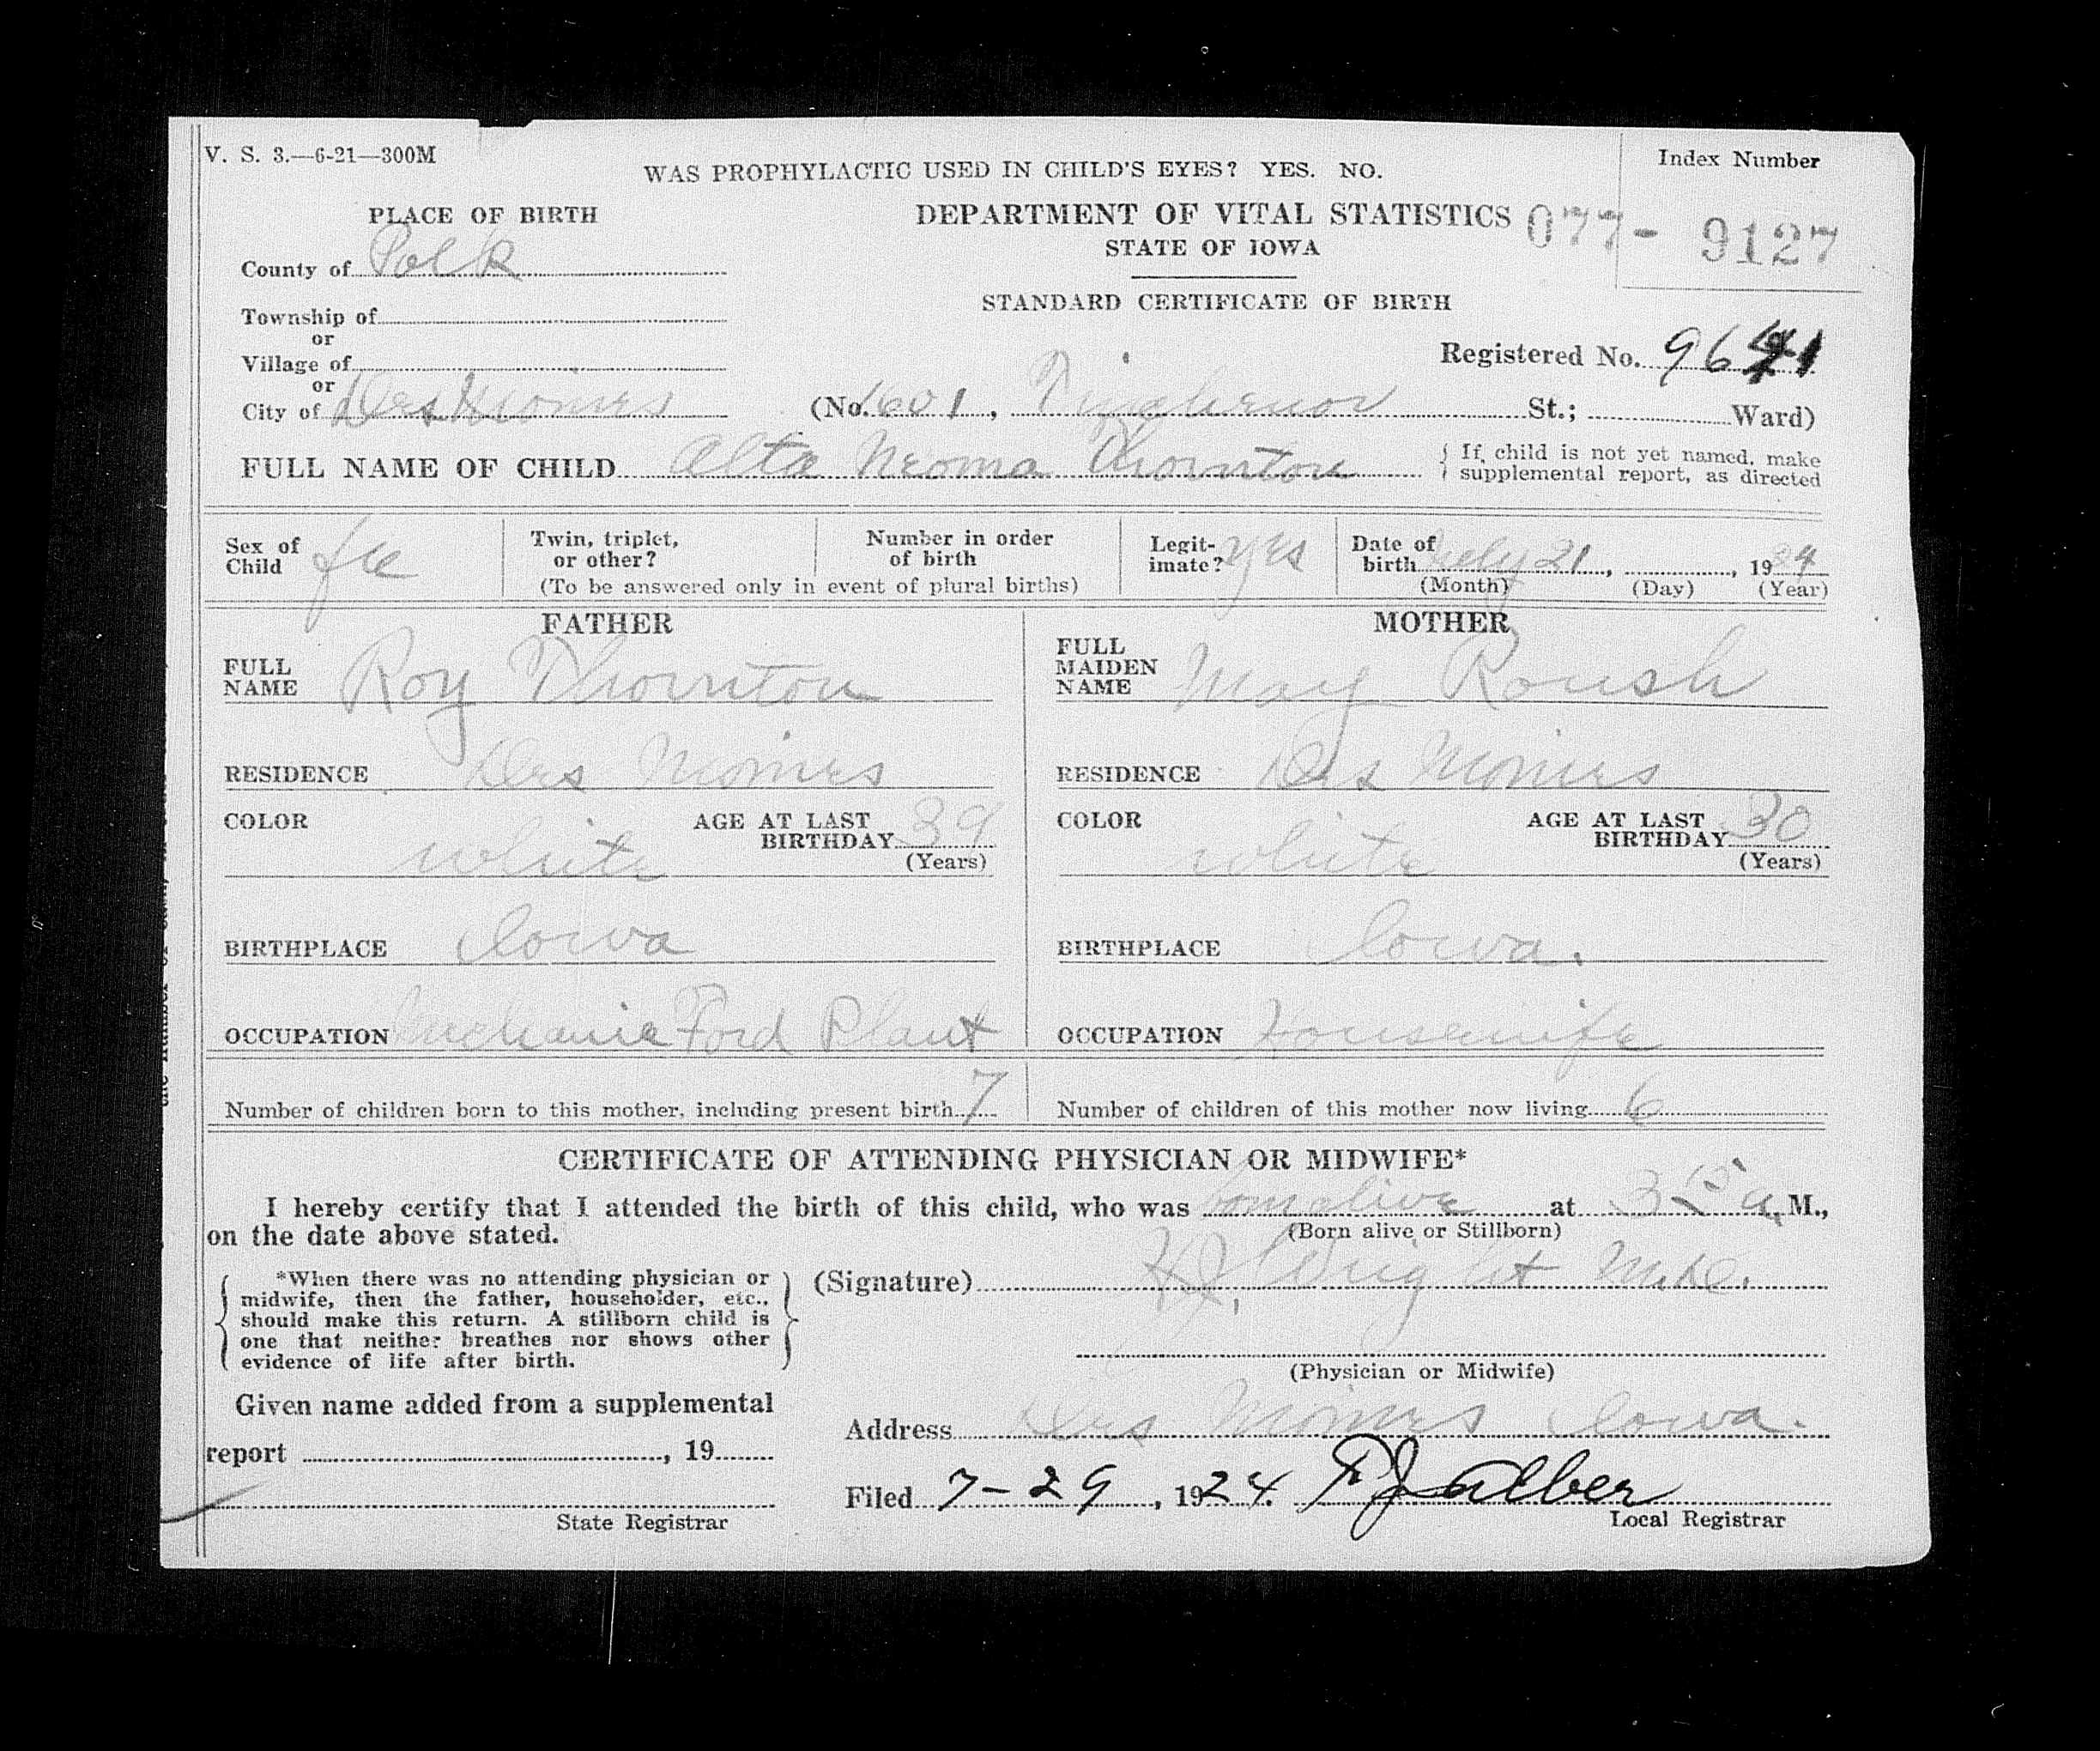 V. S. 3.—6-21—300M
WAS PROPHYLACTIC USED IN CHILD'S EYES? YES. NO.
Index Number
PLACE OF BIRTH
DEPARTMENT OF VITAL STATISTICS
077- 9127
STATE OF IOWA
County of Polk
STANDARD CERTIFICATE OF BIRTH
Township of
or
Registered No. 9641
Village of
or
City of Des Moines (No. 1601, St.; Ward)
FULL NAME OF CHILD Alta Neoma Thornton
{ If child is not yet named, make
supplemental report, as directed
Sex of Child fe
Twin, triplet, or other?
Number in order of birth
(To be answered only in event of plural births)
Legit-imate? yes
Date of birth July 21, , 1924
(Month) (Day) (Year)
FATHER
MOTHER
FULL NAME Roy Thornton
FULL MAIDEN NAME May Roush
RESIDENCE Des Moines
RESIDENCE Des Moines
COLOR white
AGE AT LAST BIRTHDAY 39
(Years)
COLOR white
AGE AT LAST BIRTHDAY 30
(Years)
BIRTHPLACE Iowa
BIRTHPLACE Iowa.
OCCUPATION Mechanic Ford Plant
OCCUPATION Housewife
Number of children born to this mother, including present birth 7
Number of children of this mother now living 6
CERTIFICATE OF ATTENDING PHYSICIAN OR MIDWIFE*
I hereby certify that I attended the birth of this child, who was born alive at 3 15 a. M.,
on the date above stated.
(Born alive or Stillborn)
{ *When there was no attending physician or
midwife, then the father, householder, etc.,
should make this return. A stillborn child is
one that neither breathes nor shows other
evidence of life after birth. }
(Signature) Wright M.D.
(Physician or Midwife)
Given name added from a supplemental
report , 19
Address Des Moines Iowa.
Filed 7-29, 1924. F J Alber
State Registrar
Local Registrar